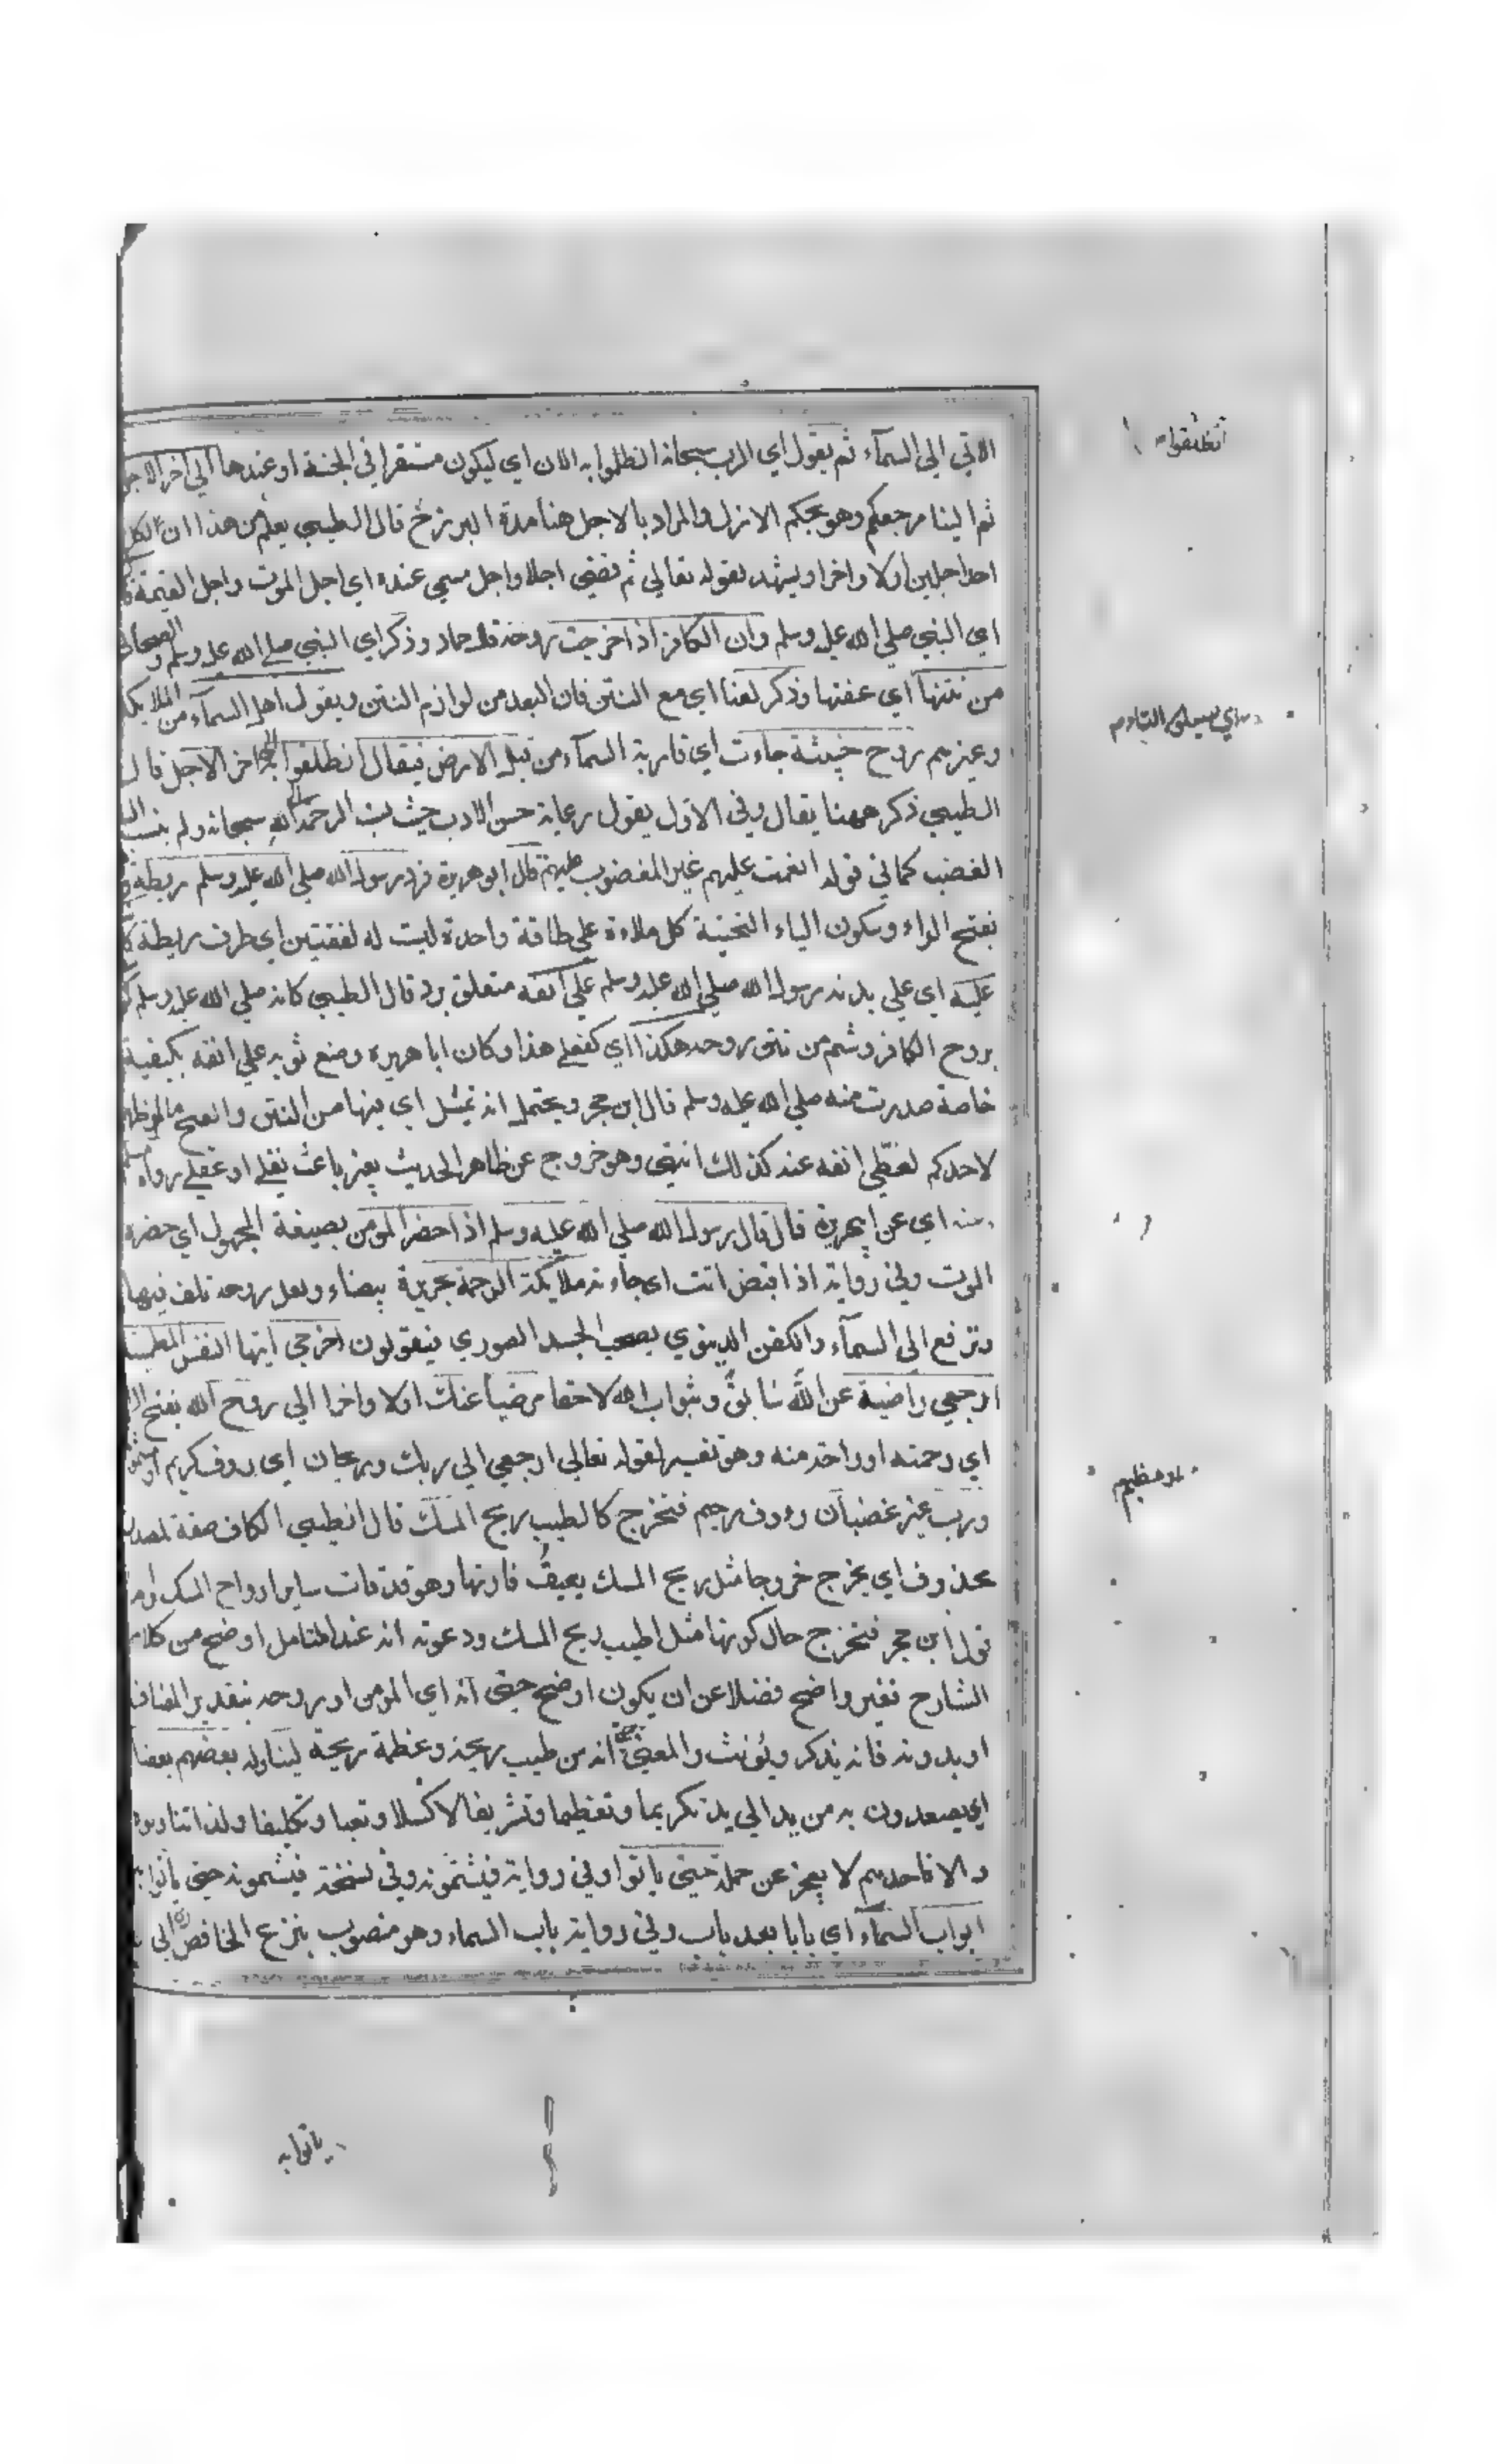 الاتي الي السمآء ثم يقول اي الرب سبحانه انطلوا به الان اي ليكون مستقرا في الجنة او عندها الي اخر الاجل
ثم الينا مرجعكم وهو بحكم الازل والمراد بالاجل هنا مدة البرزخ قال الطيبي يعلم من هذا ان لكل
احد اجلين اولا واخرا ويشهد بقوله تعالي ثم قضي اجلا واجل مسمي عنده اي اجل الموت واجل القيمة
اي النبي صلي الله عليه وسلم وان الكافر اذا خرجت روحه قال حماد وذكر اي النبي صلي الله عليه وسلم
من نتنها اي عفنها وذكر لعنا اي مع النتن فان البعد من لوازم النتن ويقول اهل السمآء من الملايكة
وغيرهم روح خبيثة جاءت اي قاربة السمآء من قبل الارض فيقال انطلقوا به الي اخر الاجل قال
الطيبي ذكر ههنا يقال وفي الاول يقول رعاية حسن الادب حيث نسب الرحمة الي الله سبحانه ولم ينسب اليه
الغضب كما في قوله انعمت عليهم غير المغضوب عليهم قال ابو هريرة فرد رسول الله صلي الله عليه وسلم ريطة
بفتح الراء وسكون الياء التحتية كل ملاءة علي طاقة واحدة ليست له لفقتين اي طرف ريطة
عليه اي علي بدنه رسول الله صلي الله عليه وسلم علي انفه متعلق برد قال الطيبي كانه صلي الله عليه وسلم
بروح الكافر وشم من نتن روحه هكذا اي كفعلي هذا وكان ابا هريره وضع ثوبه علي انفه بكيفية
خاصة صدرت منه صلي الله عليه وسلم قال ابن حجر ويحتمل انه تمثيل اي فيها من النتن والقبح ما لو ظهر
لاحدكم لغطي انفه عند كذلك انتهي وهو خروج عن ظاهر الحديث بغير باعث نقلي او عقلي رواه مسلم
وعنه اي عن ابي هريرة قال قال رسول الله صلي الله عليه وسلم اذا حضر المومن بصيغة المجهول اي حضره
الموت وفي رواية اذا قبض اتت اي جاءته ملايكة الرحمة بحريرة بيضاء ولعل روحه تلف فيها
وترفع الي السمآء والكفن الدينوي يصحب الجسد الصوري فيقولون اخرجي ايتها النفس المطمئنة
ارجعي راضية عن الله سابق وبثواب الله لاحقا مرضيا عنك اولا واخرا الي روح الله بفتح الرا
اي رحمته او راحة منه وهو تفسير لقوله تعالي ارجعي الي ربك وريحان اي روف كريم
ورب غير غضبان روف رحيم فتخرج كالطيب ريح المسك قال الطيبي الكاف صفة لمصدر
محذوف اي يخرج خروجا مثل ريح المسك يعيق فارتها وهو قد فات ساير ارواح المسك
قول ابن حجر فتخرج حال كونها مثل اطيب ريح المسك ودعوته انه عند المتامل اوضح من كلام
الشارح فغير واضح فضلا عن ان يكون اوضح حتي انه اي المومن او روحه بتقدير المضاف
او بدونه فانه يذكر ويؤنث والمعني حتي انه من طيب ريحه وعظمة ريحه ليناوله بعضهم بعضا
اي يصعدون به من يد الي يد تكريما وتعظيما وتشريفا لا كسلا وتعبا وتكليفا ولذا تناوبوه
والا فاحدهم لا يعجز عن حمله حتي ياتوا وفي رواية فيشمونه وفي نسخة فيشمونه حتي ياتوا به
ابواب السمآء اي بابا بعد باب وفي رواية باب السماء وهو منصوب بنزع الخافض اي الي
انطلقوا
ياتوا به